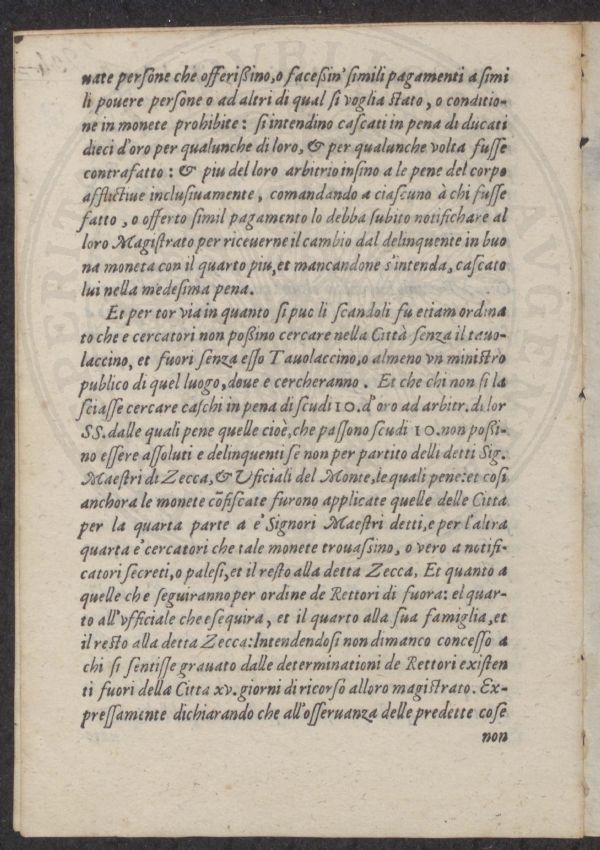 nate persone che offerißino, o faceßin' simili pagamenti a simi
li pouere persone o ad altri di qual si voglia stato, o conditio-
ne in monete prohibite: si intendino cascati in pena di ducati
dieci d'oro per qualunche di loro, & per qualunche volta fusse
contrafatto: & piu del loro arbitrio insino a le pene del corpo
afflictiue inclusiuamente, comandando a ciascuno à chi fusse
fatto, o offerto simil pagamento lo debba subito notifichare al
loro Magistrato per riceuerne il cambio dal delinquente in buo
na moneta con il quarto piu, et mancandone s'intenda, cascato
lui nella medesima pena.
Et per tor via in quanto si puo li scandoli fu etiam ordina
to che e cercatori non poßino cercare nella Città senza il tauo-
laccino, et fuori senza esso Tauolaccino, o almeno vn ministro
publico di quel luogo, doue e cercheranno. Et che chi non si la
sciasse cercare caschi in pena di scudi 10. d'oro ad arbitr. di lor
SS. dalle quali pene quelle cioè, che passono scudi 10. non poßi-
no essere assoluti e delinquenti se non per partito delli detti Sig.
Maestri di Zecca, & Vficiali del Monte, le quali pene: et cosi
anchora le monete cõfiscate furono applicate quelle delle Citta
per la quarta parte a e' Signori Maestri detti, e per l'altra
quarta e' cercatori che tale monete trouassino, o vero a notifi-
catori secreti, o palesi, et il resto alla detta Zecca. Et quanto a
quelle che seguiranno per ordine de Rettori di fuora: el quar-
to all'vfficiale che esequira, et il quarto alla sua famiglia, et
il resto alla detta Zecca: Intendendosi non dimanco concesso a
chi si sentisse grauato dalle determinationi de Rettori existen
ti fuori della Citta xv. giorni di ricorso al loro magistrato. Ex-
pressamente dichiarando che all'osseruanza delle predette cose
non